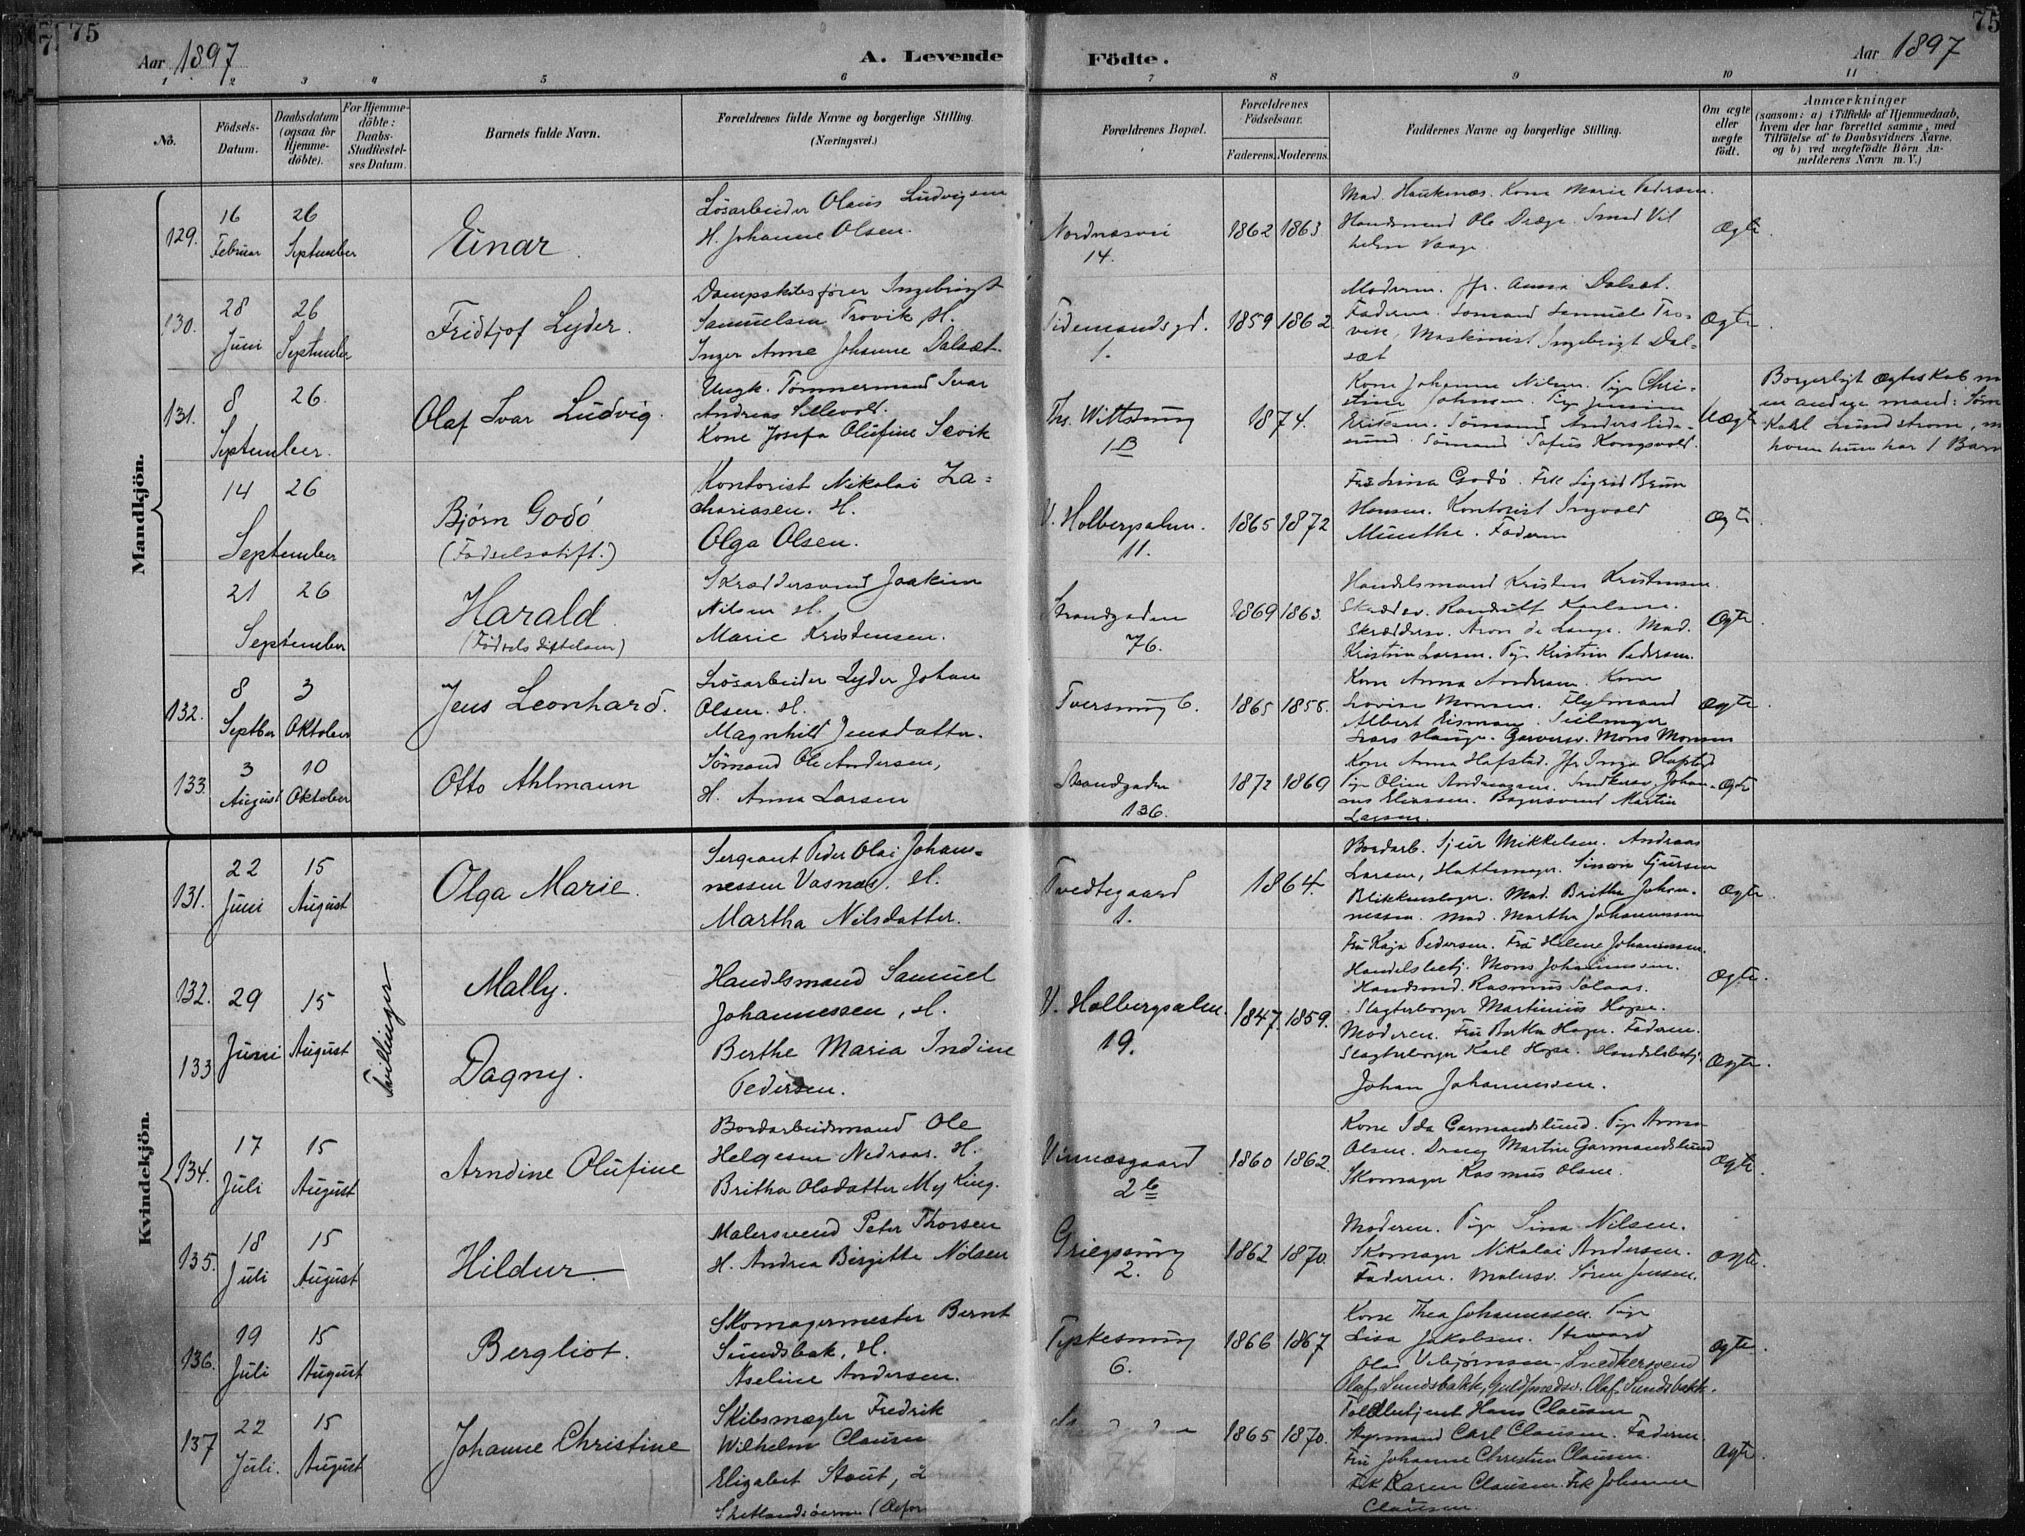 75
75
Aar 1897
A. Levende
Födte.
Aar 1897
1 2 3 4 5 6 7 8 9 10 11
No.
Födsels-
Datum.
Daabsdatum
(ogsaa for
Hjemme-
döbte).
For Hjemme-
döbte:
Daabs-
Stadfæstel-
ses Datum.
Barnets fulde Navn.
Forældrenes fulde Navne og borgerlige Stilling.
(Næringsvei.)
Forældrenes Bopæl.
Forældrenes
Födselsaar.
Faderens.
Moderens.
Faddernes Navne og borgerlige Stilling.
Om ægte
eller
uægte
födt.
Anmærkninger
(saasom: a) i Tilfælde af Hjemmedaab,
hvem der har forrettet samme, med
Tilföielse af to Daabsvidners Navne.
og b) ved uægtefödte Börn An-
melderens Navn m. V.)
Mandkjön.
129.
16
Februar
26
September
Einar
Lösarbeider Olaus Ludvigsen
H. Johanne Olsen.
Nordnæsvei
14.
1862 1863
Mad. Haukenæs. Kone Marie Pedersen.
Handsmand Ole Drage. Smed Vil
helm Vaage.
Ægte
130.
28
Juni
26
September
Fridtjof Lyder.
Dampskibsfører Ingebrigt
Samuelsen Trovik H.
Inger Anne Johanne Dalsæt.
Tidemandsgd.
1.
1859 1862
Moderen. Jfr. Anna Dalsæt.
Faderen. Sømand Samuel Tro-
vik. Maskinist Ingebrigt Dal-
sæt
Ægte
131.
8
September.
26.
Olaf Ivar Ludvig.
Ungk. Tømmermand Ivar
Andreas Sellevold.
Kone Josefa Olufine Sævik
Ths. Wittsmug
1B
1874.
Kone Johanne Nilsen. Pige Chri-
stine Johnsen. Pige
Eriksen. Sømand Anders
Sømand Sofus Kongsvold.
Uægte
Borgerligt Ægteskab m
en anden mand: Søm
Karl Lundstrøm, m
hvem hun har 1 Barn
14
September
26
Bjørn Godö
(Fødselsatift.)
Kontorist Nikolai Za=
chariasen. H.
Olga Olsen.
V. Holbergsalm.
11.
1865 1872
Fru Lina Godö. Frk Sigrid Brun
Hansen. Kontorist Ingvald
Munthe. Faderen
Ægte
21
September
26
Harald
(Födsels diftelsen)
Skræddersvend Joakim
Nilsen H.
Marie Kristensen.
Strandgaden
76.
1869 1863
Handelsmand Kristen Kristensen.
Skrædder. Randulf Karlsen.
Skræddersv. Aron de Lange. Mad.
Kristine Larsen. Pige Kristin Pedersen.
Ægte
132.
8
Septber
3
Oktober
Jens Leonhard.
Lösarbeider Lyder Johan
Olsen. H.
Magnhild Jensdatter.
Tversmug 6.
1865 1855.
Kone Anna Andersen. Kone
Lovise Monsen. Flytmand
Albert Eismann. Seilmager
Lars Hauge. Garversv. Mons Monsen
Ægte
133.
3
August
10
Oktober
Otto Ahlmann
Sømand Ole Andersen,
H. Anna Larsen
Strandgaden
136.
1872 1869
Kone Anna Hafstad. Jfr Inga Hafstad
Pige Oline Andreasen. Snedkersv. Johan-
nes Eliassen. Bagersvend Martin
Larsen.
Ægte
Kvindekjön.
131.
22
Juni
15
August
Olga Marie.
Sergeant Peder Olai Johan-
nessen Vasnæs. H.
Martha Nilsdatter.
Tvedtegaard
1.
1864
Bordarb. Sjur Mikkelsen. Andreas
Larsen, Hattemager. Simon Sjursen
Blikkenslager. Mad. Britha Johan-
nessen. Mad. Martha Johannessen
Ægte.
132.
29
Juni
15
August
Tvillinger
Mally.
Handlsmand Samuel
Johannessen, H.
Berthe Maria Indine
Pedersen.
V. Holbergsalm.
19.
1847. 1859.
Fru Kaja Pedersen. Fru Helene Johannessen.
Handelsbetj. Mons Johannessen.
Handsmd. Rasmus Solaas.
Slagterborger Martinius Hope.
Ægte.
133
Dagny.
Moderen. Fru Bertha Hope. Faderen.
Slagterborger Karl Hope. Handelsbetj.
Johan Johannessen.
Ægte.
134.
17
Juli
15
August
Arndine Olufine
Bordarbeidsmand Ole
Helgesen Nedraas. H.
Britha Olsdatter Myking.
Vinnæsgaard
2b
1860 1862.
Kone Ida Garmandslund. Pige Anna
Olsen. Dreng Martin Garmandslund
Skomager Rasmus Olsen.
Ægte
135.
18
Juli
15
August
Hildur.
Malersvend Peter Thorsen
H. Andrea Birgitte Nilsen
Griegsmug
2.
1862 1870.
Moderen. Pige Lina Nilsen.
Skomager Nikolai Andersen.
Faderen. Malersv. Sören Jensen.
Ægte.
136.
19
Juli
15
August
Bergliot.
Skomagermester Bernt
Sundsbak, H.
Aseline Andersen.
Tydkesmug
6.
1866 1867
Kone Thea Johannessen. Pige
Lisa Jakobsen. Steward
Olai Vebjørnsen. Snedkersvend
Olaf Sundsbakk, Guldsmedsv. Olaf Sundsbakk.
Ægte.
137
22
Juli.
15
August
Johanne Christine
Skibsmægler Fredrik
Wilhelm Clausen
Elizabet Stout,
Shetlandsöerne
Strandgaden
1865 1870.
Toldbetjent Hans Clausen
Styrmand Carl Clausen. Faderen.
Fru Johanne Christine Clausen.
Frk Karen Clausen. Frk Johanne
Clausen.
Ægte